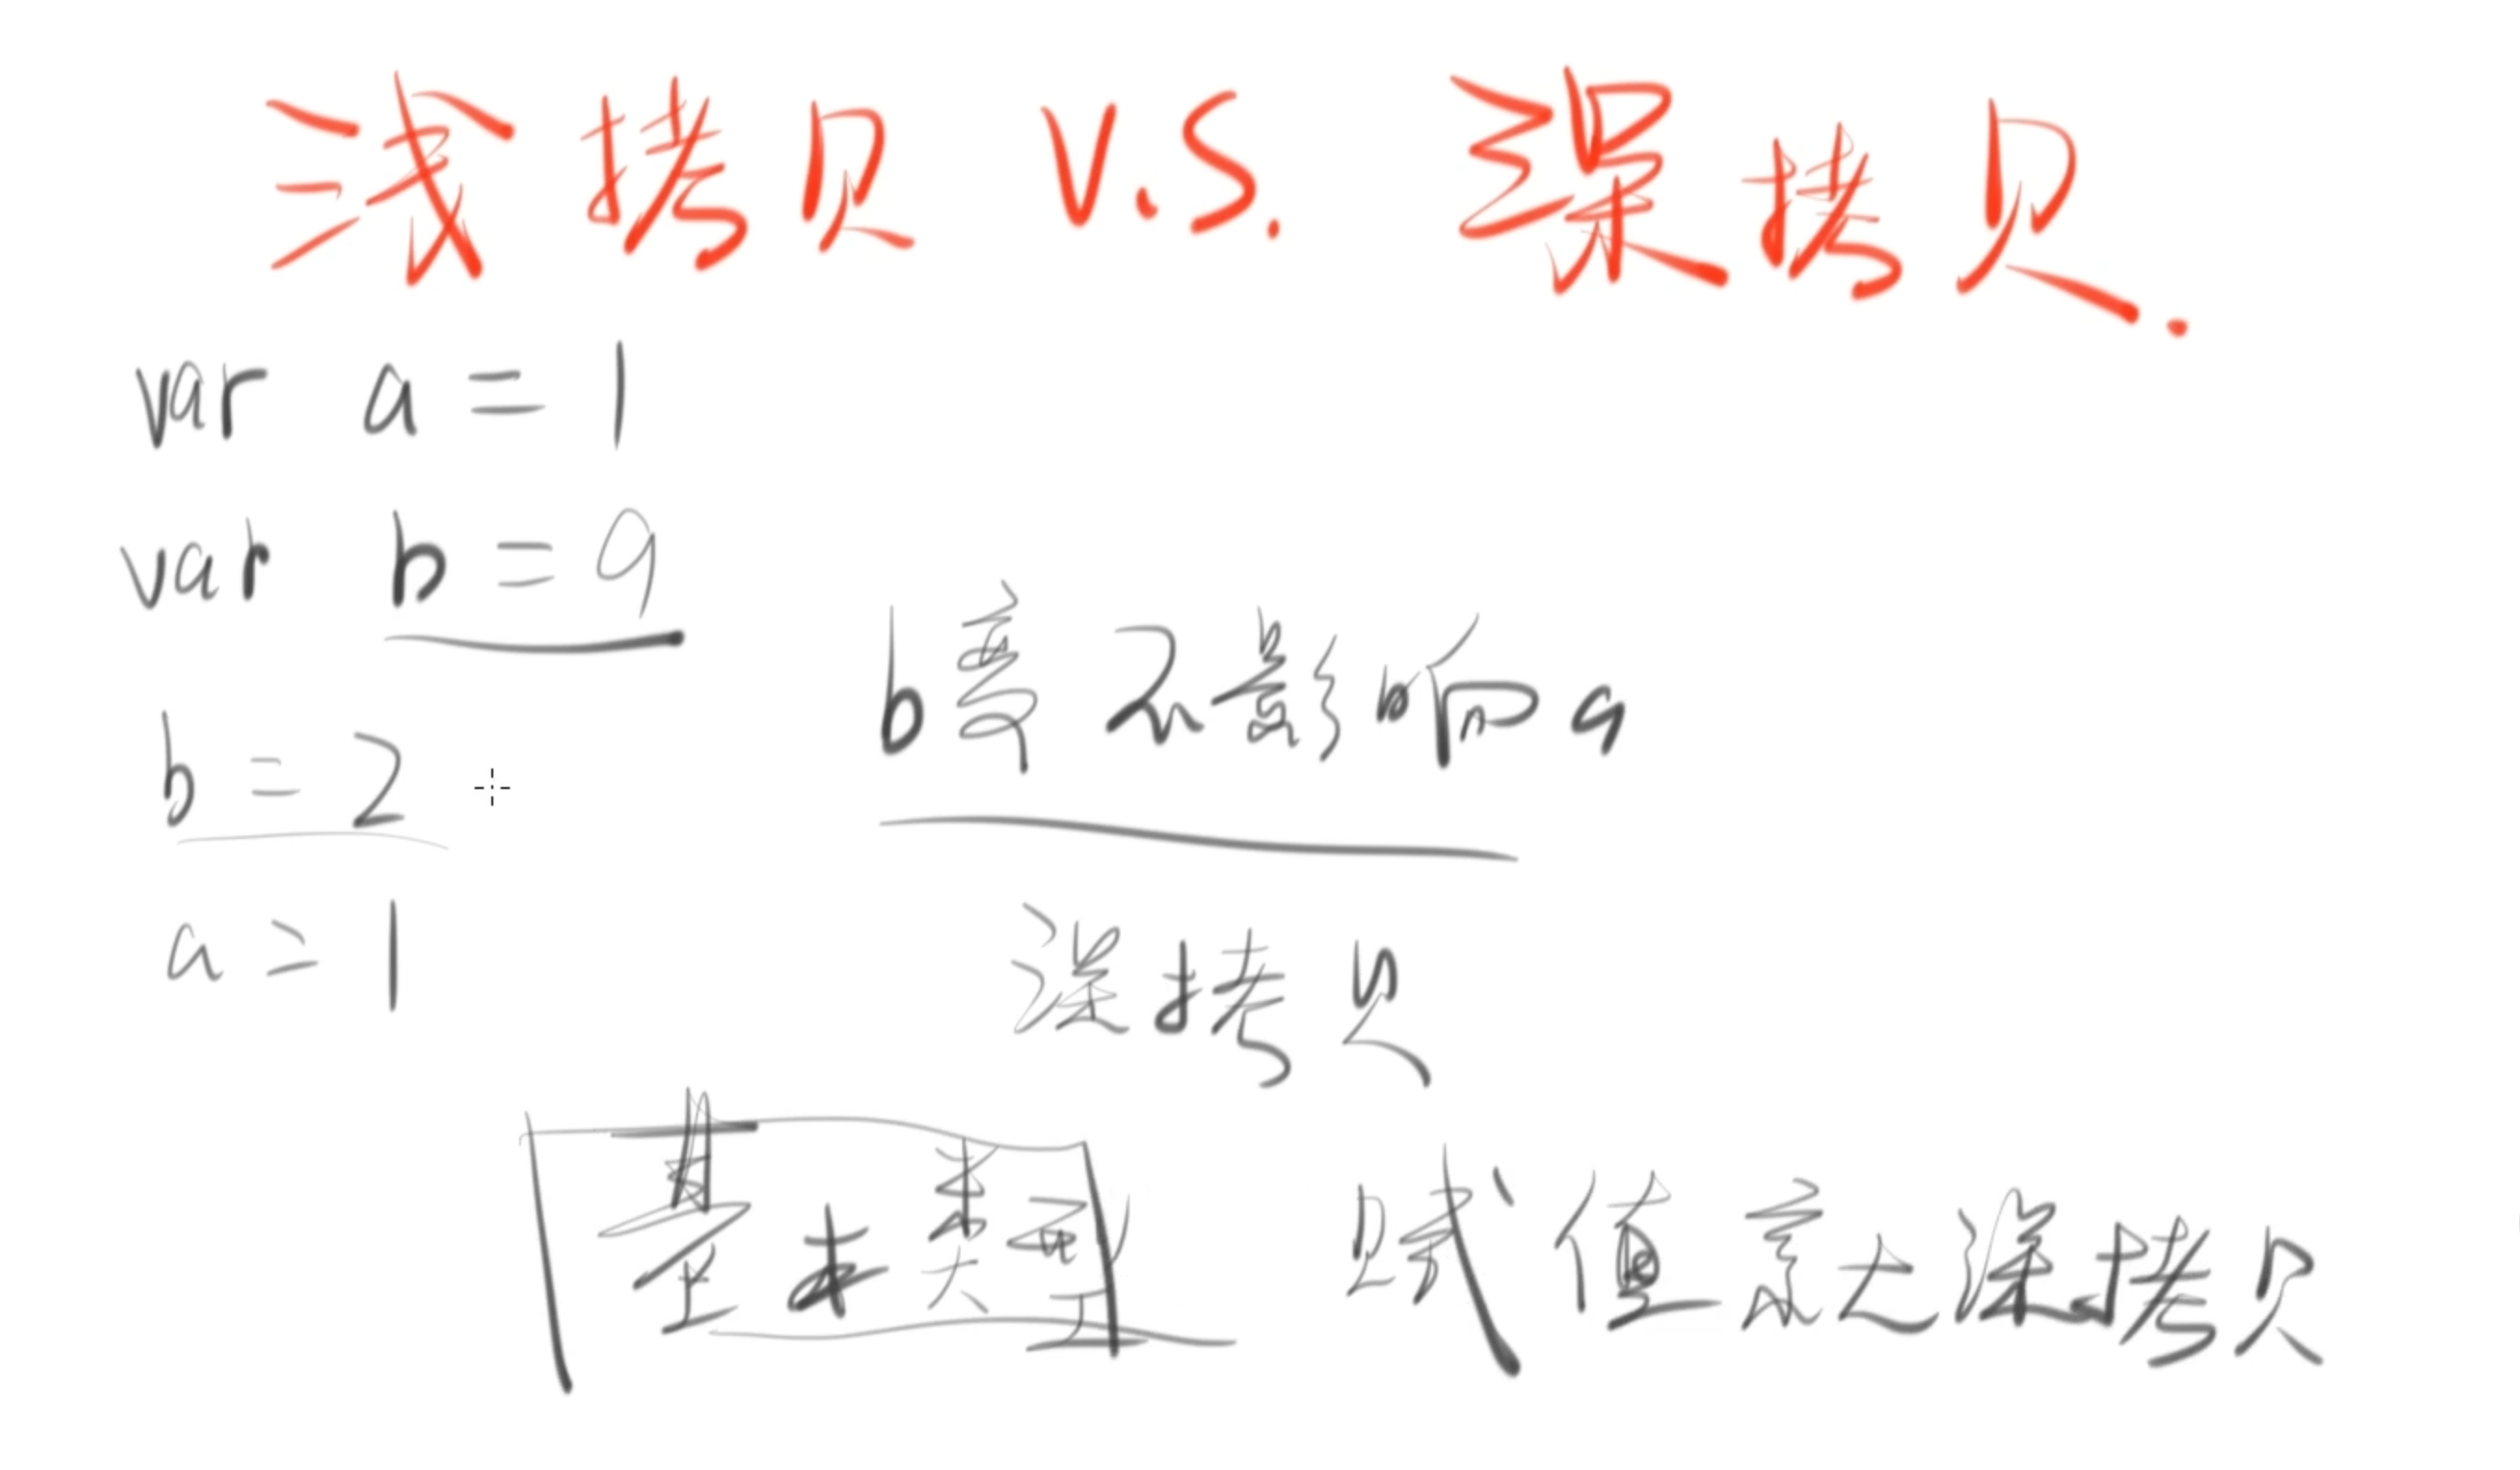 浅拷贝 V.S. 深拷贝.
var a = 1
var b = a
b变不影响a
b = 2
a = 1
深拷贝
基本类型 赋值就是深拷贝